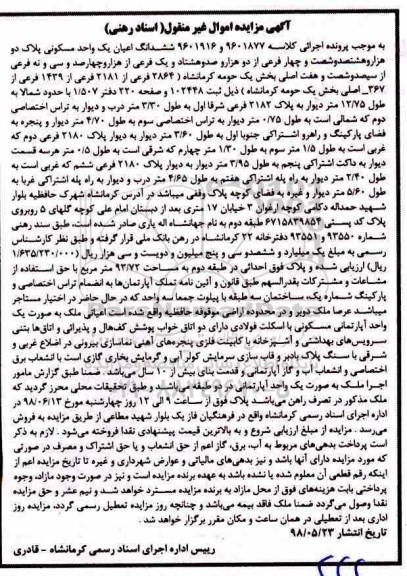 آگهی مزایده اموال غیر منقول( اسناد رهنی)
به موجب پرونده اجرائی کلاسه ۹۶۰۱۸۷۷ و ۹۶۰۱۹۱۶ ششدانگ اعیان یک واحد مسکونی پلاک دو
هزاروهشتصدوشصت و چهار فرعی از دو هزارو صدوهشتاد و یک فرعی از هزاروچهارصد و سی و نه فرعی
از سیصدوشصت و هفت اصلی بخش یک حومه کرمانشاه ( ۲۸۶۴ فرعی از ۲۱۸۱ فرعی از ۱۴۳۹ فرعی از
۳۶۷_ اصلی بخش یک حومه کرمانشاه ) ذیل ثبت ۱۰۲۴۴۸ و صفحه ۲۲۰ دفتر ۱/۵۰۷ با حدود شمالا به
طول ۱۲/۷۵ متر دیوار به پلاک ۲۱۸۲ فرعی شرقا اول به طول ۳/۳۰ متر درب و دیوار به تراس اختصاصی
دوم که شمالی است به طول ۰/۷۵ متر دیوار به تراس اختصاصی سوم به طول ۴/۷۰ متر دیوار و پنجره به
فضای پارکینگ و راهرو اشتراکی جنوبا اول به طول ۳/۶۰ متر دیوار به دیوار پلاک ۲۱۸۰ فرعی دوم که
غربی است به طول ۱/۵ متر سوم به طول ۱/۳۰ متر چهارم که شرقی است به طول ۰/۵ متر هرسه قسمت
دیوار به داکت اشتراکی پنجم به طول ۳/۹۵ متر دیوار به دیوار پلاک ۲۱۸۰ فرعی ششم که غربی است به
طول ۲/۴۰ متر دیوار به راه پله اشتراکی هفتم به طول ۴/۶۵ متر درب و دیوار به راه پله اشتراکی غربا به
طول ۵/۶۰ متر دیوار و پنجره به فضای کوچه پلاک وقفی میباشد در آدرس کرمانشاه شهرک حافظیه بلوار
شهید حمداله دکامی کوچه ارغوان ۳ خیابان ۱۷ متری بعد از دبستان امام علی کوچه گلهای ۵ روبروی
پلاک کد پستی ۶۷۱۵۸۳۹۸۵۴ طبقه دوم به نام جهانشاه اله یاری صادر شده است، طبق سند رهنی
شماره ۹۳۵۵۰ و ۹۳۵۵۱ دفترخانه ۲۲ کرمانشاه در رهن بانک ملی قرار گرفته و طبق نظر کارشناس
رسمی به مبلغ یک میلیارد و ششصدو سی و پنج میلیون و دویست و سی هزار ریال(۱/۶۳۵/۲۳۰/۰۰۰
ریال) ارزیابی شده و پلاک فوق احداثی در طبقه دوم به مساحت ۹۳/۷۲ متر مربع با حق استفاده از
مشاعات و مشترکات بقدرالسهم طبق قانون و آئین نامه تملک آپارتمان‌ها به انضمام تراس اختصاصی و
پارکینگ شماره یک، ساختمان سه طبقه با پیلوت جمعا سه واحد که در حال حاضر در اختیار مستاجر
میباشد عرصا ملک دوبر و در محدوده اراضی موقوفه حافظیه واقع شده است اعیانی ملک به صورت یک
واحد آپارتمانی مسکونی با اسکلت فولادی دارای دو اتاق خواب پوشش کف‌هال و پذیرائی و اتاق‌ها بتنی
سرویس‌های بهداشتی و آشپزخانه با کابینت فلزی پنجره‌های آهنی نماسازی بیرونی در اضلاع غربی و
شرقی با سنگ پلاک بادبر و قاب سازی سرمایش کولر آبی و گرمایش بخاری گازی است با انشعاب برق
اختصاصی و انشعاب آب و گاز آپارتمانی و قدمت بنای بیش از ۱۰ سال می‌باشد. ضمنا طبق گزارش مامور
اجرا ملک به صورت یک واحد آپارتمانی در دو طبقه می‌باشد و طبق تحقیقات محلی محرز گردید که
ملک مذکور در تصرف راهن می‌باشد پلاک فوق از ساعت ۹ الی ۱۲ روز چهارشنبه مورخ ۹۸/۰۶/۱۳ در
اداره اجرای اسناد رسمی کرمانشاه واقع در فرهنگیان فاز یک بلوار شهید مطاعی از طریق مزایده به فروش
می‌رسد . مزایده از مبلغ ارزیابی شروع و به بالاترین قیمت پیشنهادی نقدا فروخته می‌شود . لازم به ذکر
است پرداخت بدهی‌های مربوط به آب، برق، گاز اعم از حق انشعاب و یا حق اشتراک و مصرف در صورتی
که مورد مزایده دارای آنها باشد و نیز بدهی‌های مالیاتی و عوارض شهرداری و غیره تا تاریخ مزایده اعم از
اینکه رقم قطعی آن معلوم شده یا نشده باشد به عهده برنده مزایده است و نیز در صورت وجود مازاد، وجوه
پرداختی بابت هزینه‌های فوق از محل مازاد به برنده مزایده مسترد خواهد شد و نیم عشر و حق مزایده
نقدا وصول می‌گردد ضمنا ملک فاقد بیمه می‌باشد و چنانچه روز مزایده تعطیل رسمی گردد، مزایده روز
اداری بعد از تعطیلی در همان ساعت و مکان مقرر برگزار خواهد شد .
تاریخ انتشار ۹۸/۰۵/۲۳
رییس اداره اجرای اسناد رسمی کرمانشاه - قادری